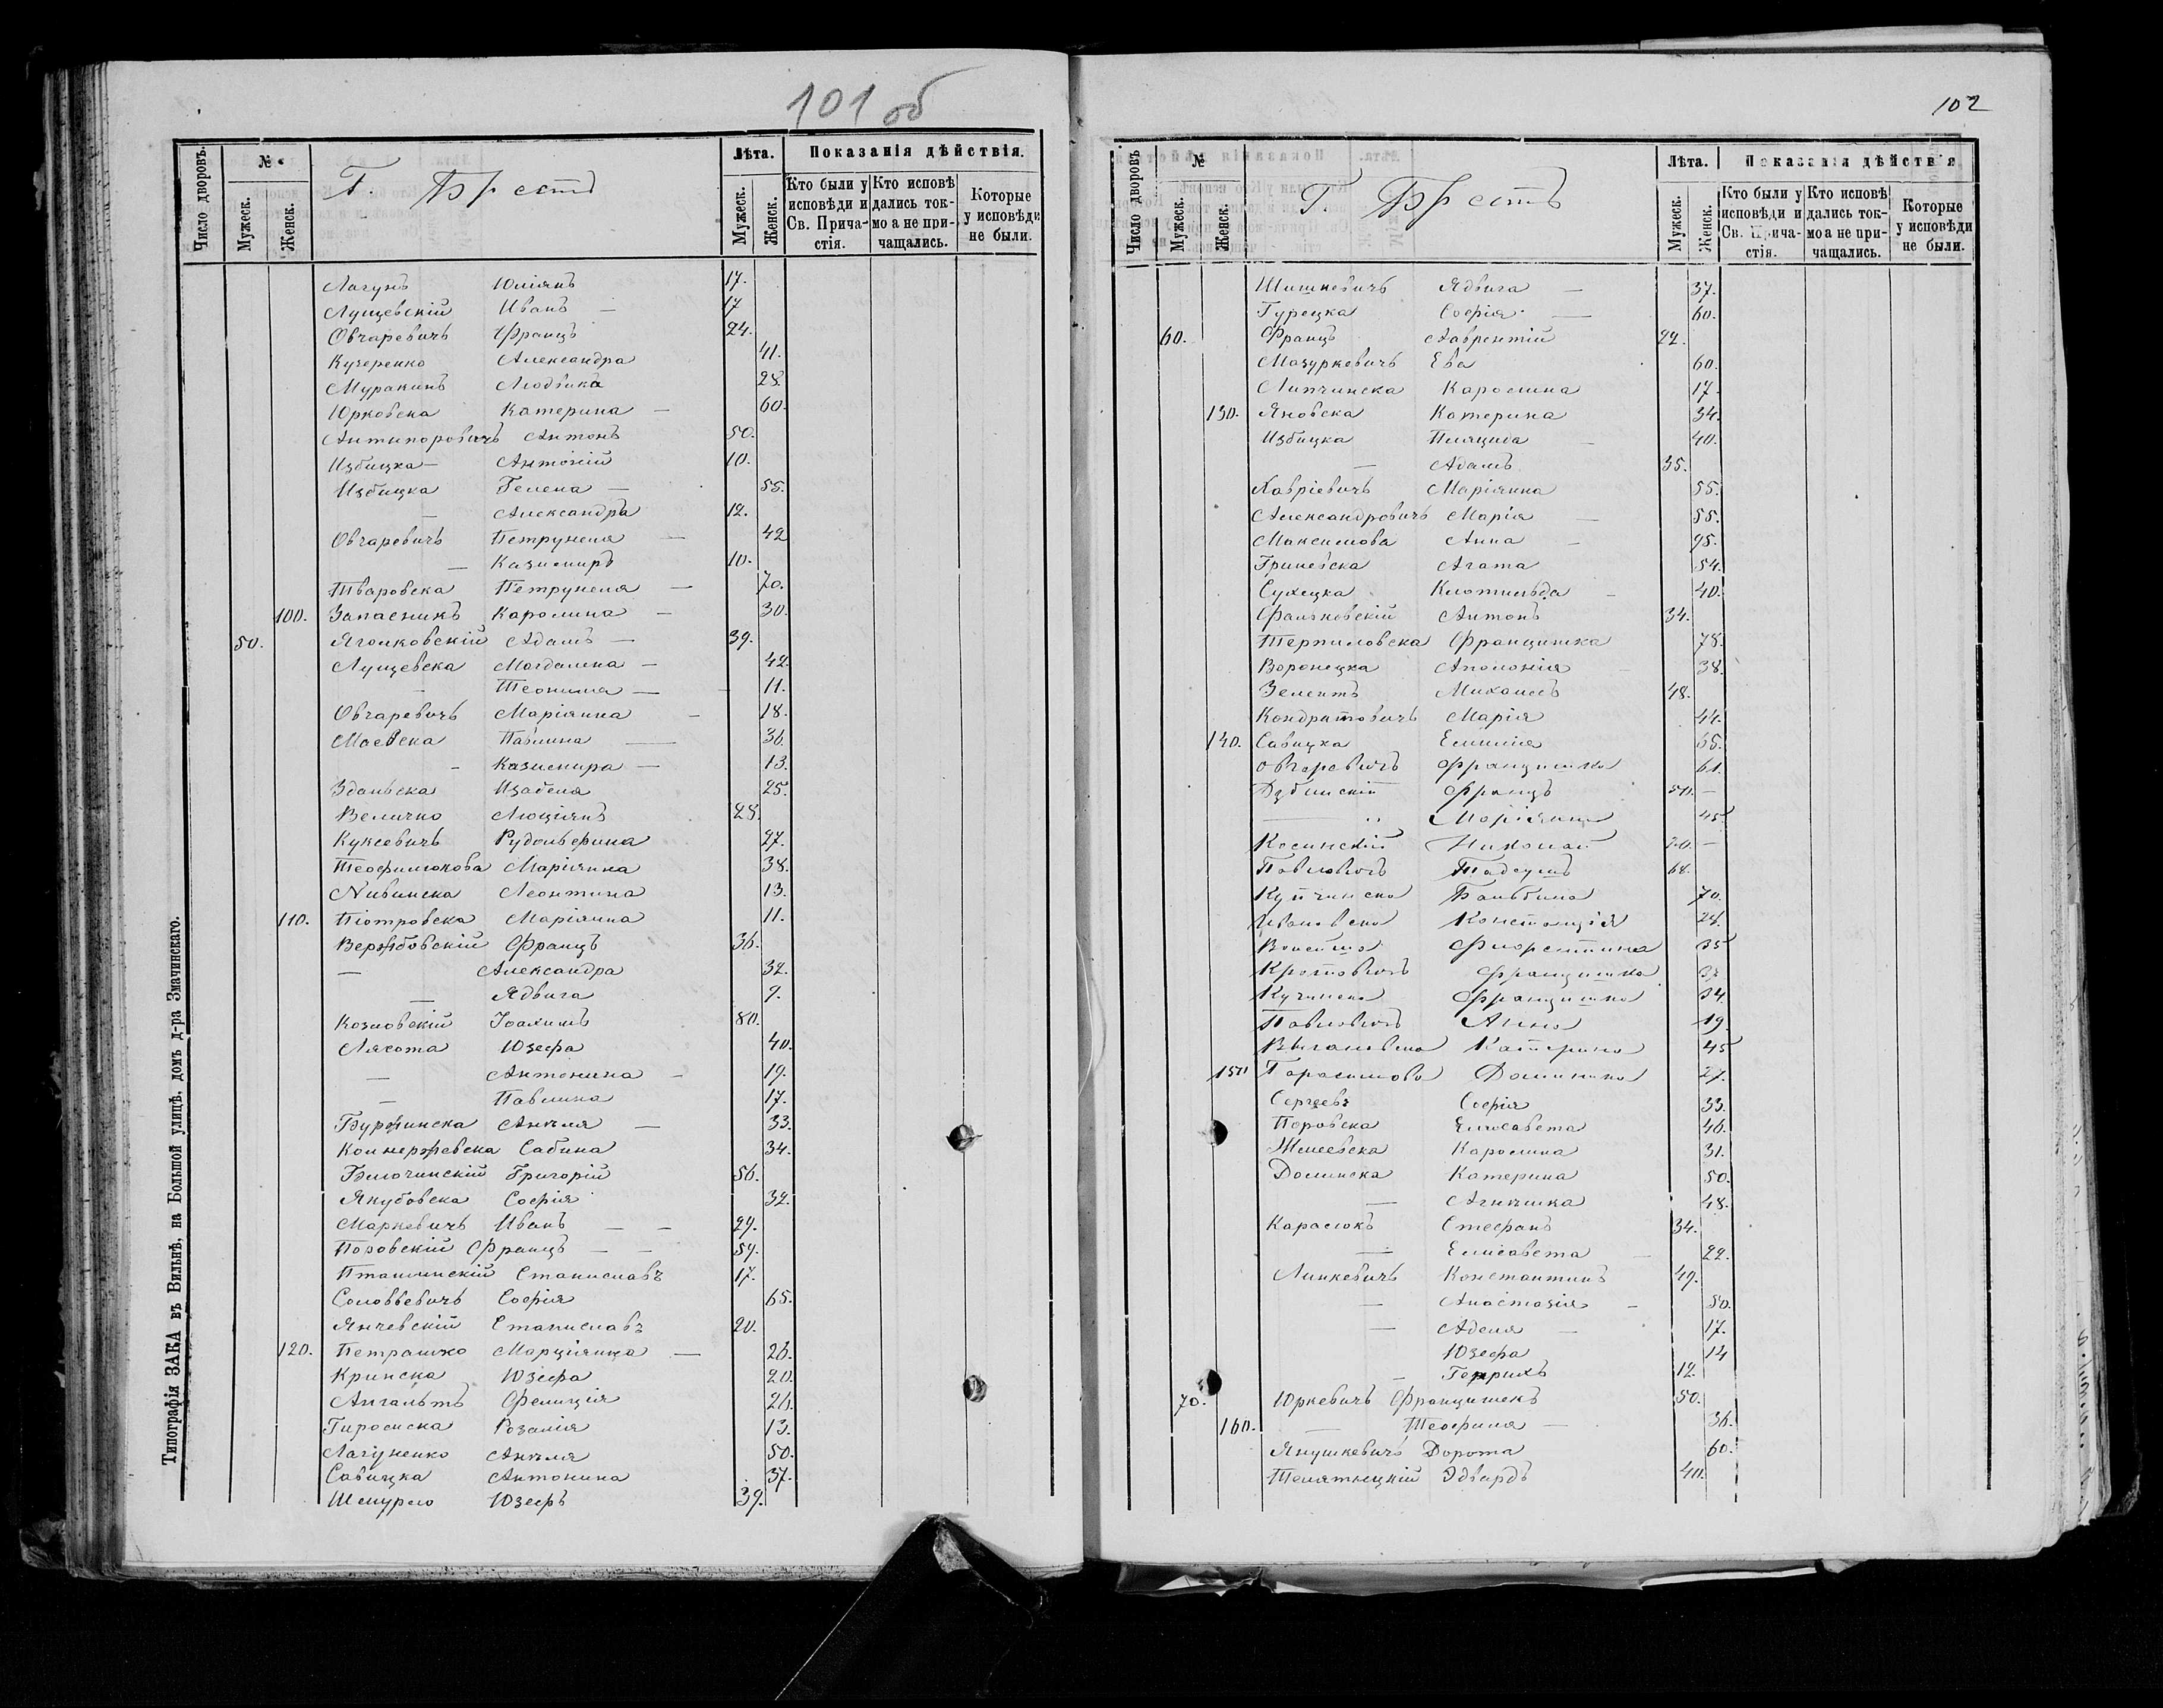 101 об
Число дворовъ.
№
Мужеск.
Женск.
Г. Брестъ
Лѣта.
Мужеск.
Женск.
Показанія дѣйствія.
Кто были у исповѣди и Св. Прича-стія.
Кто исповѣ дались ток-мо а не при-чащались.
Которые у исповѣди не были.
Лагунъ Юліянъ 17.
Лущевскій Иванъ — 17
Овчаревичъ Францъ 24.
Кучеренко Александра 41.
Муракинъ Людвика 28.
Юрковска Катерина — 60.
Антипоровичъ Антонъ 50.
Избицка — Антоній 10.
Избицка Гелена — 55.
— Александръ 12.
Овчаревичъ Петрунеля — 42
— Казимиръ 10.
Тваровска Петрунеля — 70.
100. Запасникъ Каролина — 30.
50. Яголковскій Адамъ — 39.
Лущевска Магдалина — 42.
— Теонила — 11.
Овчаревичъ Маріянна — 18.
Маевска Павлина — 36.
— Казимира — 13.
Здановска Изабеля 25.
Величко Люціянъ 28.
Куксевичъ Рудольфина 27.
Теофилюкова Маріянна 38.
Нивинска Леонтина 13.
110. Піотровска Маріянна 11.
Вержбовскій Францъ 36.
— Александра 32.
— Ядвига 9.
Козловскій Іоахимъ 80.
Лясота Юзефа 40.
— Антонина — 19.
— Павлина 17.
Буржинска Анѣля — 33.
Коинержевска Сабина 34.
Билочинскій Григорій 56.
Якубовска Софія 32.
Маркевичъ Иванъ — — 29.
Поповскій Францъ — — 59.
Пташинскій Станиславъ 17.
Соловьевичъ Софія 65.
Янчевскій Станиславъ 20.
120. Петрашко Марціянна — 26.
Кринска Юзефа 20.
Ангальтъ Фелиція 26.
Гиросиска Розалія 13.
Лагуненко Анѣля 50.
Савицка Антонина 37.
Шепурло Юзефъ 39.
Типографія ЗАКА въ Вильнѣ, на Большой улицѣ, домъ д-ра Змачинскаго.
102
Число дворовъ
№
Мужеск.
Женск.
Г. Брестъ
Лѣта.
Мужеск.
Женск.
Показанія дѣйствія
Кто были у исповѣди и Св. Прича-стія.
Кто исповѣ дались ток-мо а не при-чащались.
Которые у исповѣди не были.
Шишкевичъ Ядвига — 37.
Гурецка Софія — 60.
60. Францъ Лаврентій 22.
Мазуркевичъ Ева 60.
Липчинска Каролина 17.
130. Яновска Катерина 34.
Избицка Пляцида — 40.
— Адамъ 35.
Хавріевичъ Маріянна 55.
Александровичъ Марія — 55.
Максимова Анна — 95.
Гриневска Агата 54.
Сухецка Клотильда — 40.
Фальковскій Антонъ 34.
Терпиловска Францишка 78.
Воронецка Аполонія — 38.
Зелентъ Михаилъ 48.
Кондратовичъ Марія 44.
140. Савицка Емилія 65.
Овчаревичъ Францишка 61.
Дублинскій Францъ 50. —
— Маріянна 45
Косинскій Николай 20. —
Павловичъ Тадеушъ 68.
Купчинска Бальбина 70.
Ивановска Констанція 24.
Флорентина 35
Кротовичъ Францишка 32
Кучинска Францишка 34.
Павловичъ Анна 19.
Выгановска Катерина 45
150 Гарасимова Доминика 27.
Сергеевъ Софія 33.
Поровска Елисавета 46.
Жилевска Каролина 31.
Долинска Катерина 50.
— Агнѣшка 48.
Карасюкъ Стефанъ 34.
— Елисавета — 22.
Линкевичъ Константинъ 49.
— Анастазія — 50.
— Аделя — 17.
Юзефа 14
— Генрихъ 12.
70. Юркевичъ Францишекъ 50.
160. — Теофиля — 36.
Янушкевичъ Дорота 60.
Телятыцкій Эдвардъ 40.